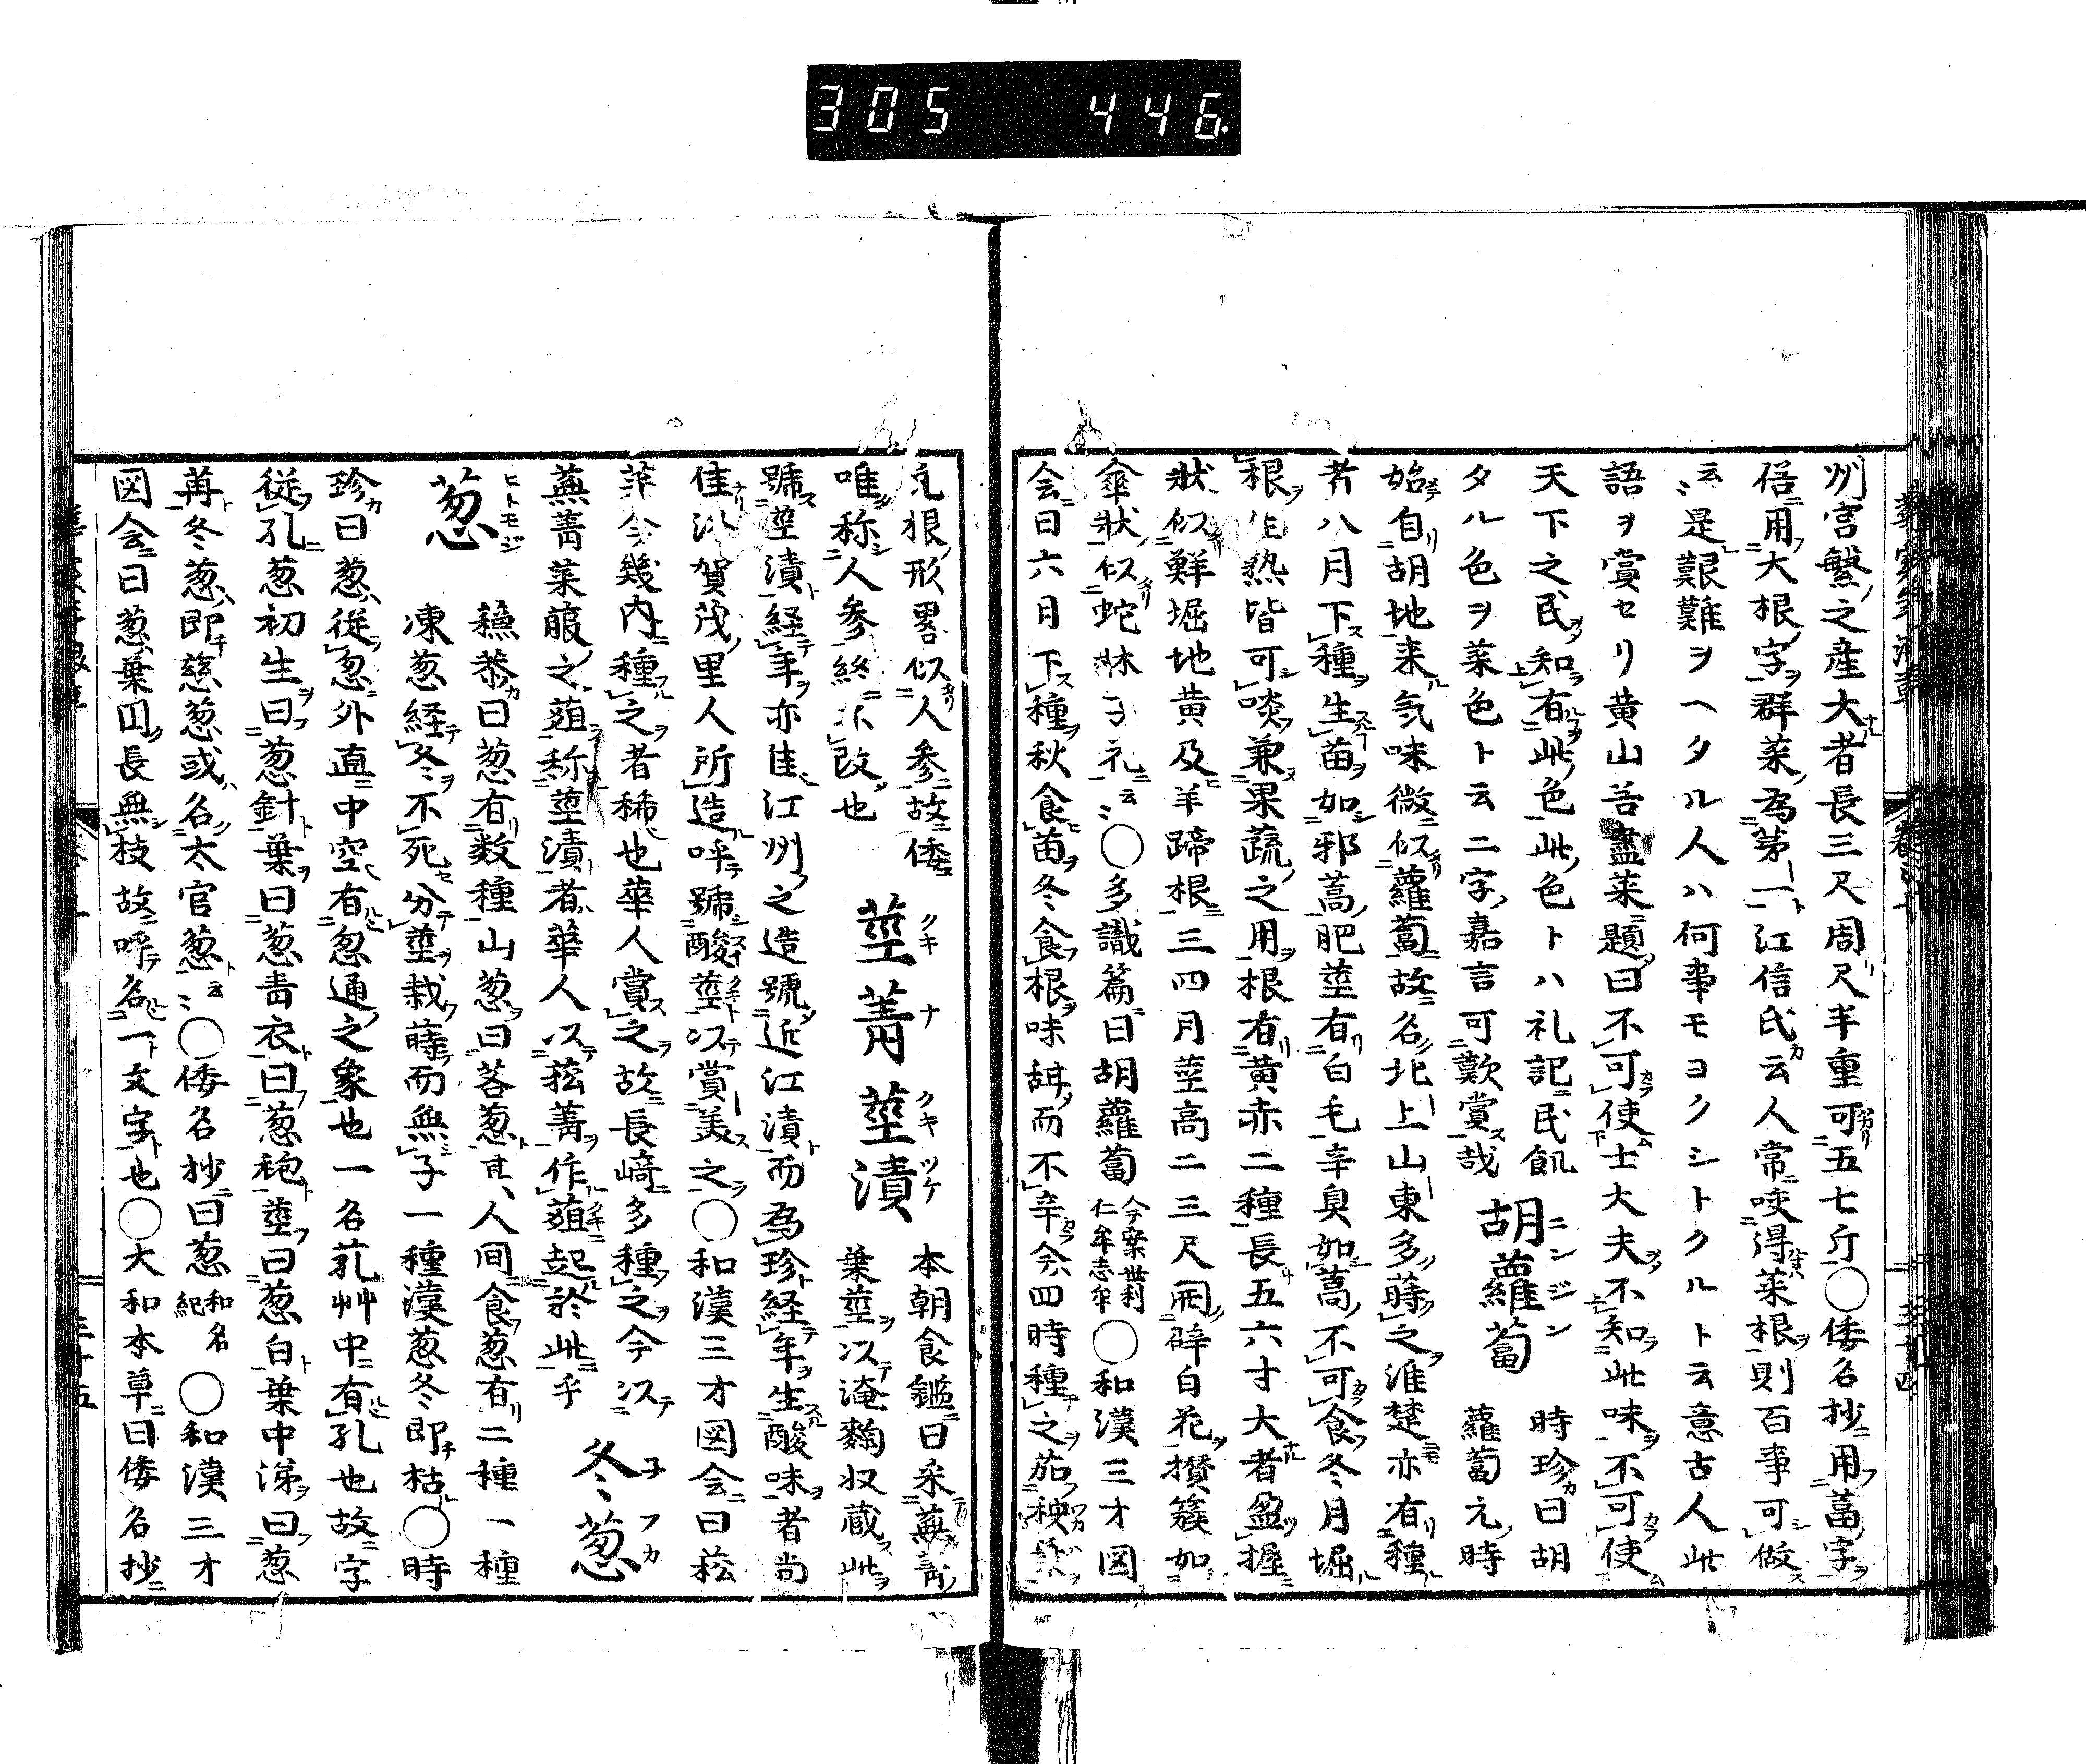 305 446
州宮繫之産大者長三尺周尺半重可五七斤○倭名抄用葍字
俗用大根字群菜為第一江信氏云人常咬得菜根則百事可做
云〻是艱難ヲヘタル人ハ何事モヨクシトクルト云意古人此
語ヲ賞セリ黄山谷畫菜題曰不可使士大夫不知此味不可使
天下之民知有此色此色トハ礼記民飢
タル色ヲ菜色ト云二字嘉言可歎賞哉
胡蘿蔔 ニンジン
時珍曰胡
蘿蔔元時
始自胡地来気味微似蘿蔔故名北上山東多蒔之淮楚亦有種
者八月下種生苗如邪蒿肥莖有白毛辛臭如蒿不可食冬月堀
根生熟皆可啖兼果蔬之用根有黄赤二種長五六寸大者盈握
狀似鮮堀地黄及羊蹄根三四月莖高二三尺開碎白花攅簇如
傘狀似蛇牀子礼云〻○多識篇曰胡蘿蔔 今案世利仁牟志牟 ○和漢三才図
会曰六月下種秋食苗冬食根味甜而不辛今四時種之茄秧
凢根形畧似人参故倭
唯称人參終不改也
莖菁莖漬 クキナクキツケ
本朝食鑑曰采蕪菁
葉莖以淹麹収蔵此
號莖漬経年亦佳江州之造號近江漬而為珍経年生酸味者尚
佳洛賀茂里人所造呼號酸莖以賞美之○和漢三才図会曰菘
菜今幾内種之者稀也華人賞之故長崎多種之今以
蕪菁菜服之葅称莖漬者華人以菘菁作葅起於此乎
冬葱 子フカ
葱 ヒトモジ
蘓恭曰葱有数種山葱曰茖葱其人間食葱有二種一種
凍葱経冬不死分莖栽蒔而無子一種漢葱冬即枯○時
珍曰葱従怱外直中空有怱通之象也一名芤艸中有孔也故字
従孔葱初生曰葱針葉曰葱青衣曰葱袍莖曰葱白葉中涕曰葱
苒冬葱即慈葱或名太官葱云〻○倭名抄曰葱 和名紀 ○和漢三才
図会曰葱葉囗長無枝故呼名一文字也○大和本草曰倭名抄